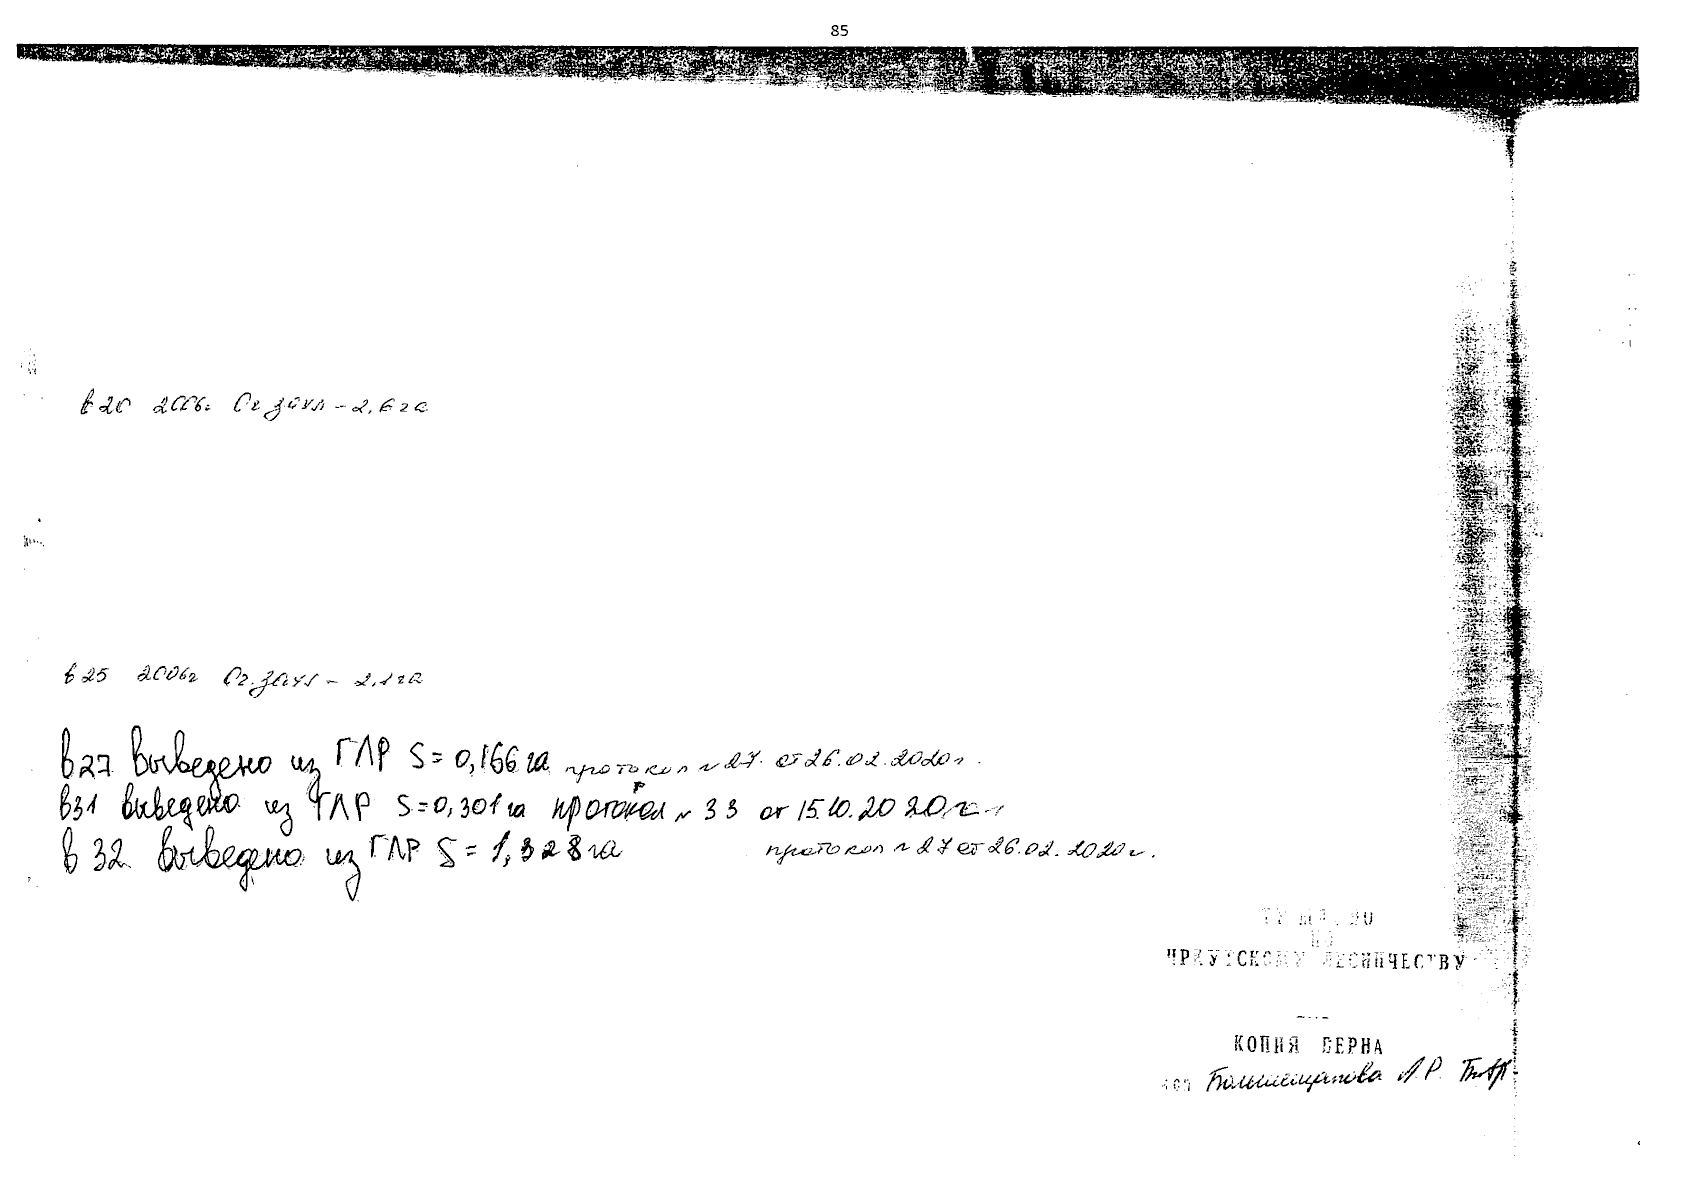 85
в 20 2006г Ст. заял – 2,6 га
в 25 2006г Ст. заял – 2,1 га
в 27 выведено из ГЛР S = 0,166 га протокол № 27 от 26.02.2020г.
в 31 выведено из ГЛР S = 0,301 га протокол № 33 от 15.10.2020г
в 32 выведено из ГЛР S = 1,328 га протокол № 27 от 26.02.2020г.
ПО
ИРКУТСКОМУ ЛЕСНИЧЕСТВУ
КОПИЯ ВЕРНА
Л.Р.